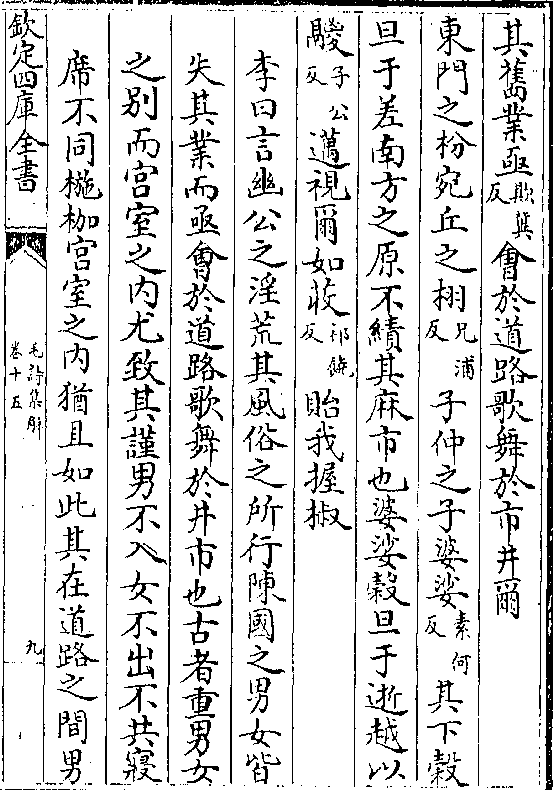 其舊業亟欺冀反會於道路歌舞於市井爾
東門之枌宛丘之栩兄浦反子仲之子婆娑素何反其下穀
旦于差南方之原不績其麻市也婆娑穀旦于逝越以
鬷子公反邁視爾如荍祁饒反貽我握椒
李曰言幽公之淫荒其風俗之所行陳國之男女皆
失其業而亟會於道路歌舞於井市也古者重男女
之別而宮室之內尤致其謹男不入女不出不共寢
席不同椸枷宮室之內猶且如此其在道路之間男
欽定四庫全書
毛詩集解
卷十五
九